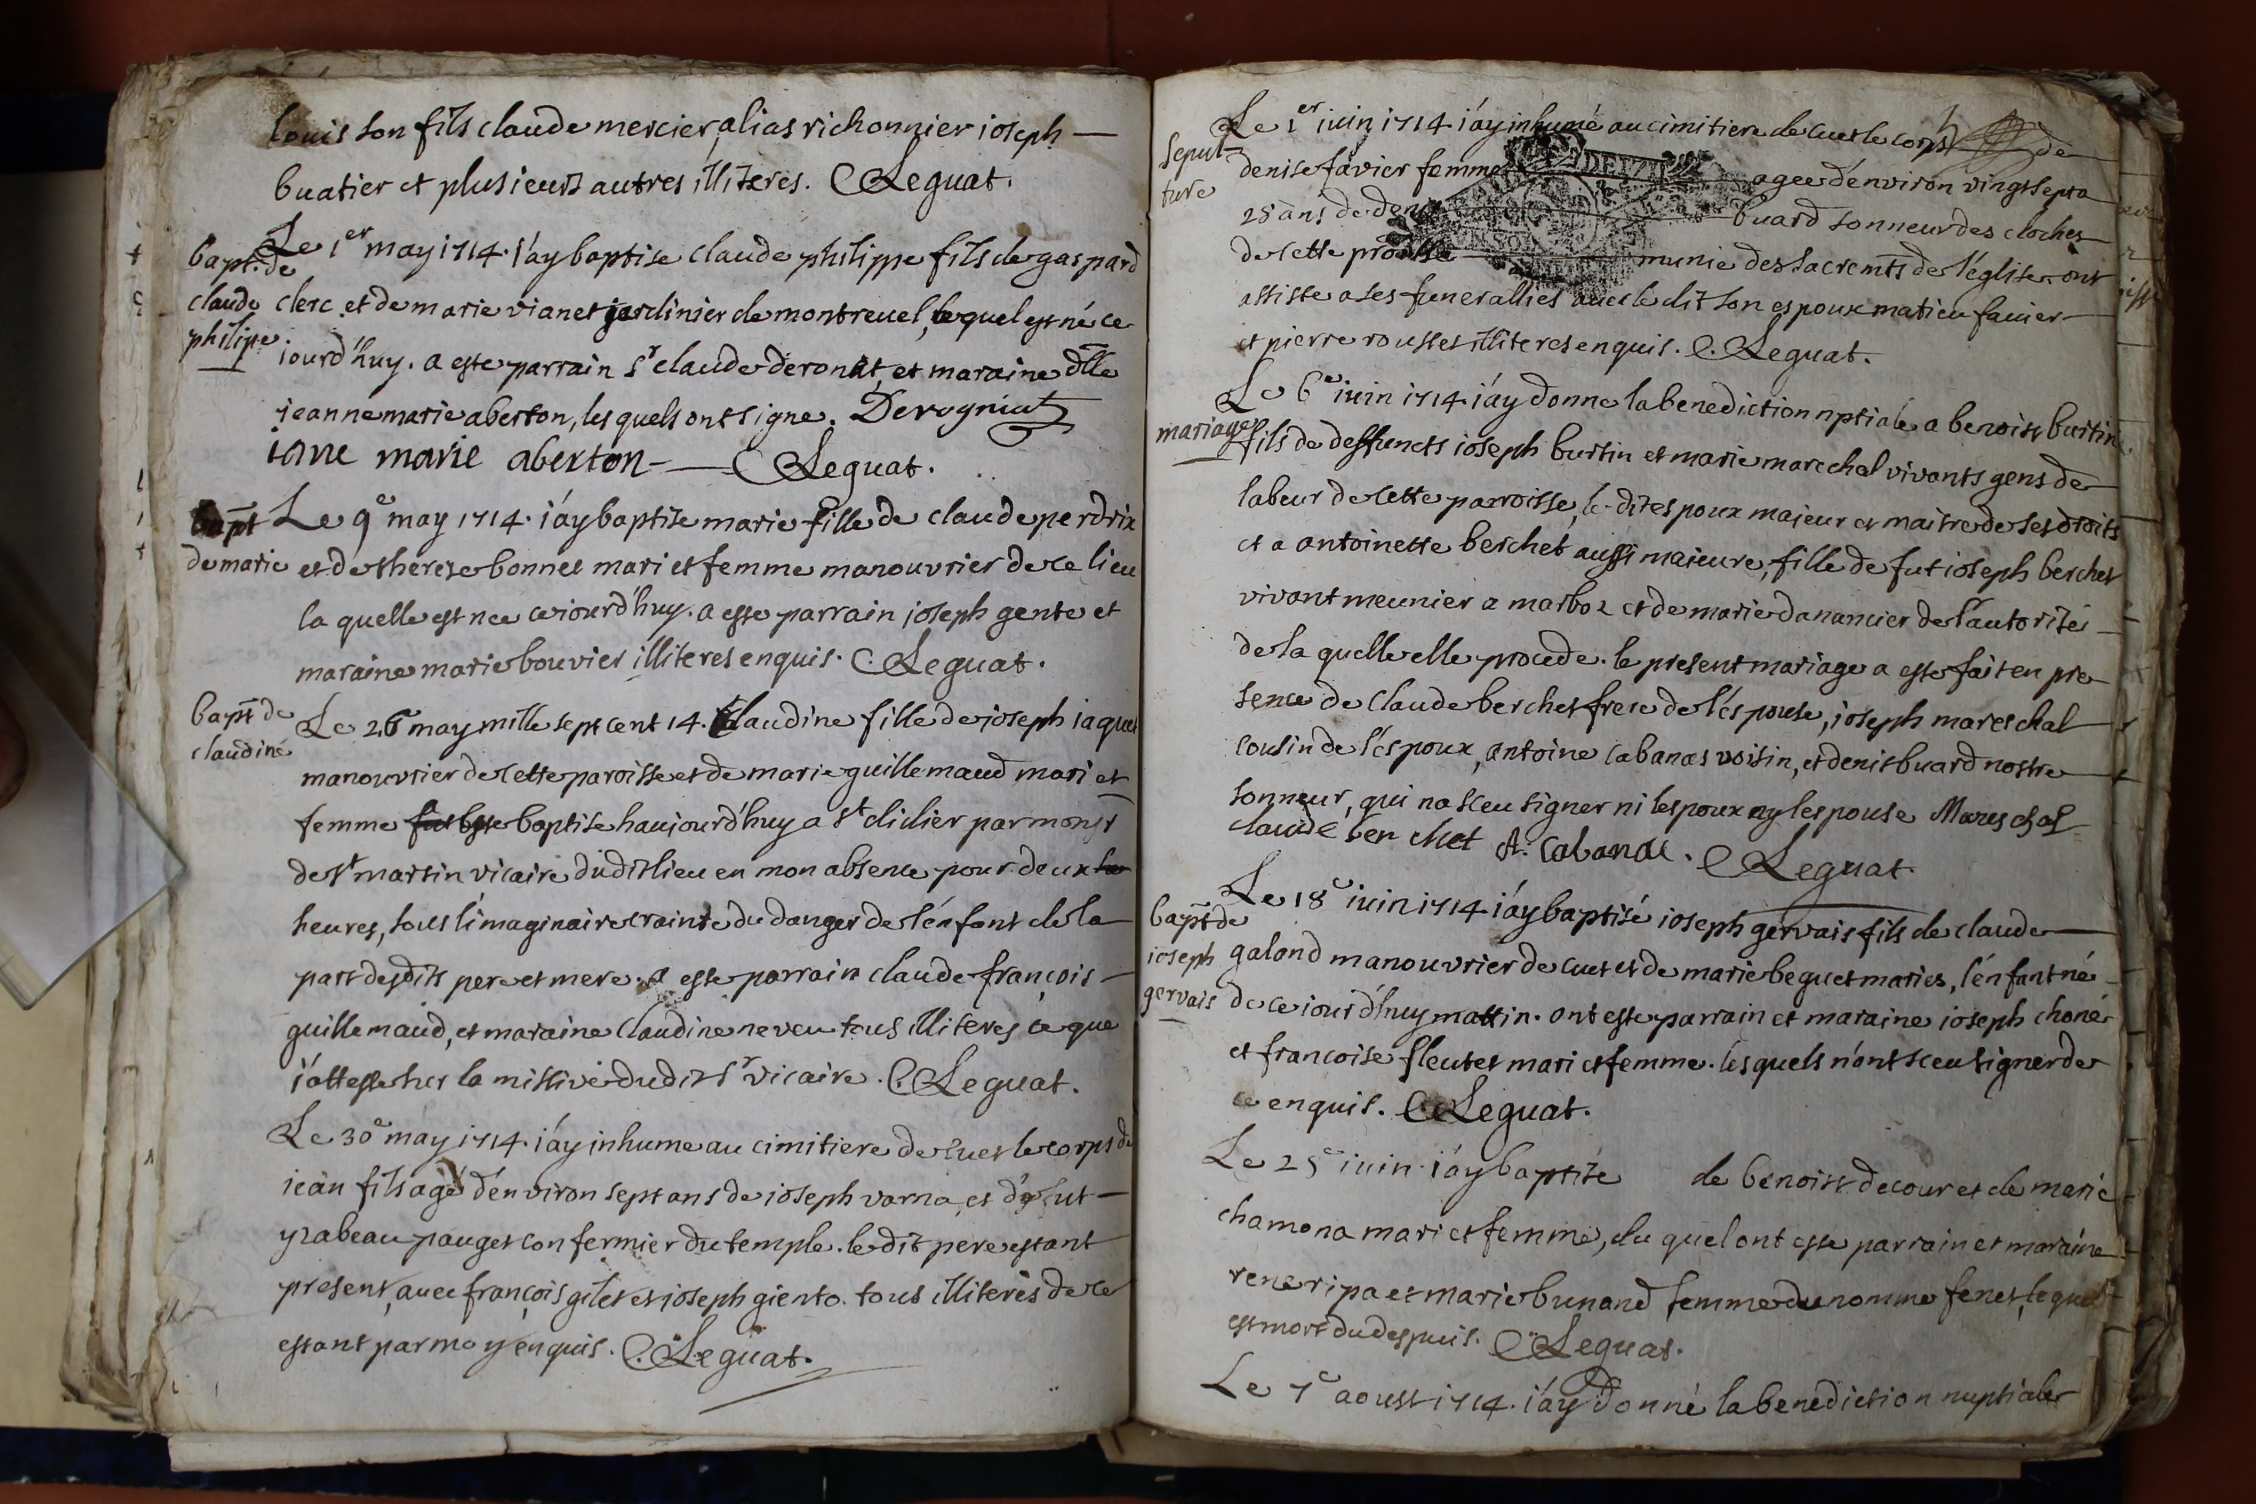 louis son fils claude mercier, alias richonnier ioseph
buatier et plusieurs autres illiteres. C Leguat.
bapt. de
claude
philipe
Le 1er may 1714. i'ay baptise claude philippe fils de gaspard
clerc et de marie vianet jardinier de montrevel, lequel est né ce
iourd'huy. a este parrain Sr claude deronat, et maraine dlle
jeanne marie aberton, les quels ont signe. Derogniat
iane marie aberton C Leguat.
bapt
de marie
Le 9e may 1714. i'ay baptise marie fille de claude perdrix
et de therese bonnet mari et femme manouvrier de ce lieu
la quelle est nee ce iourd'huy. a este parrain joseph gente et
maraine marie bouvier illiteres enquis. C. Leguat.
bapt de
claudine
Le 26e may mille sept cent 14. Claudine fille de joseph iaquet
manouvrier de cette paroisse et de marie guillemaud mari et
femme baptise haujourd'huy a St didier par monsr
de St martin vicaire dudit lieu en mon absence pour deux
heures, sous l'imaginaire crainte du danger de l'enfant de la
part desdits pere et mere. a este parrain claude françois
guillemaud, et maraine Claudine neveu tous illiteres ce que
j'atteste sur la missive dudit Sr vicaire. C. Leguat.
Le 30e may 1714. i'ay inhume au cimitiere de cuet le corps de
iean fils agé d'environ sept ans de ioseph varna, et
yzabeau pauget con fermier du temple. ledit pere estant
present, avec françois gilet et joseph giento. tous illiteres de ce
estant par moy enquis. C. Leguat.
sepul
ture
Le 1er iuin 1714 i'ay inhumé au cimitiere de cuet le corps de
denise favier femme agee d'environ vingt sept a
28 ans de denis buard sonneur des cloches
de cette proisse munie des sacremts de l'église. ont
assiste a ses funerallies avec le dit son espoux matieu favier
et pierre rousset illiteres enquis. C. Leguat.
mariage
Le 6e iuin 1714. i'ay donne la benediction nptiale a benoist burtin
fils de deffuncts ioseph burtin et marie marechal vivants gens de
labeur de cette parroisse, le dit espoux majeur et maitre de ses droits
et a antoinette berchet aussi majeure, fille de fut ioseph berchet
vivant meunier a marboz et de marie danancier de l'autorité
de la quelle elle procede. le present mariage a este fait en pre
sence de claude berchet frere de l'espouse, ioseph mareschal
cousin de l'espoux, antoine cabanaz voisin, et denis buard nostre
sonneur, qui na sceu signer ni lespoux ny lespouse Mareschal
claude berchet A. Cabanac. C Leguat.
bapt de
ioseph
gervais
Le 18e iuin 1714. i'ay baptisé ioseph gervais fils de claude
galand manouvrier de cuet et de marie beguet maries, l'enfant né
de ce iourd'huy mattin. ont este parrain et maraine ioseph choné
et francoise fleutet mari et femme. lesquels n'ont sceu signer de
ce enquis. C. Leguat.
Le 25e iuin i'ay baptise de benoist decour et de marie
chamona mari et femme, du quel ont este parrain et maraine
rene ripa et marie bunand femme du nomme fenet, lequel
est mort du despuis. C Leguat.
Le 7e aoust 1714. i'ay donné la benediction nuptiale